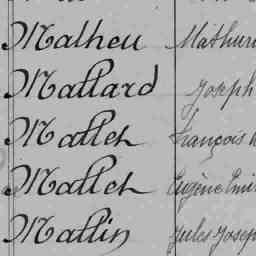 Malheu Mathuri
Mallard Joseph
Mallet François
Mallet Eugène Emil
Mallin Jules Josep